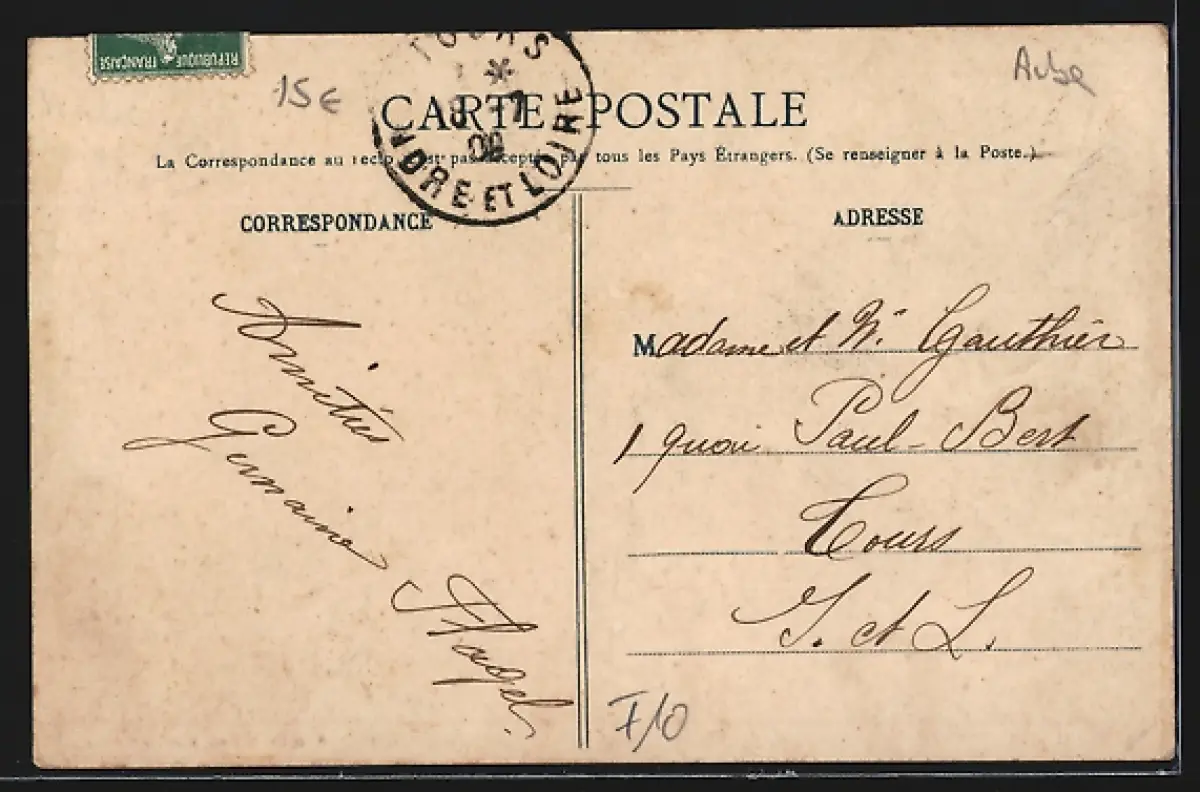 REPUBLIQUE FRANÇAISE
15€
Aube
TOURS
*
INDRE-ET-LOIRE
CARTE POSTALE
La Correspondance au recto n'est pas acceptée par tous les Pays Étrangers. (Se renseigner à la Poste.)
CORRESPONDANCE
ADRESSE
Amitiés
Germaine
Madame et M. Gauthier
1 quai Paul-Bert
Tours
I. et L.
F10